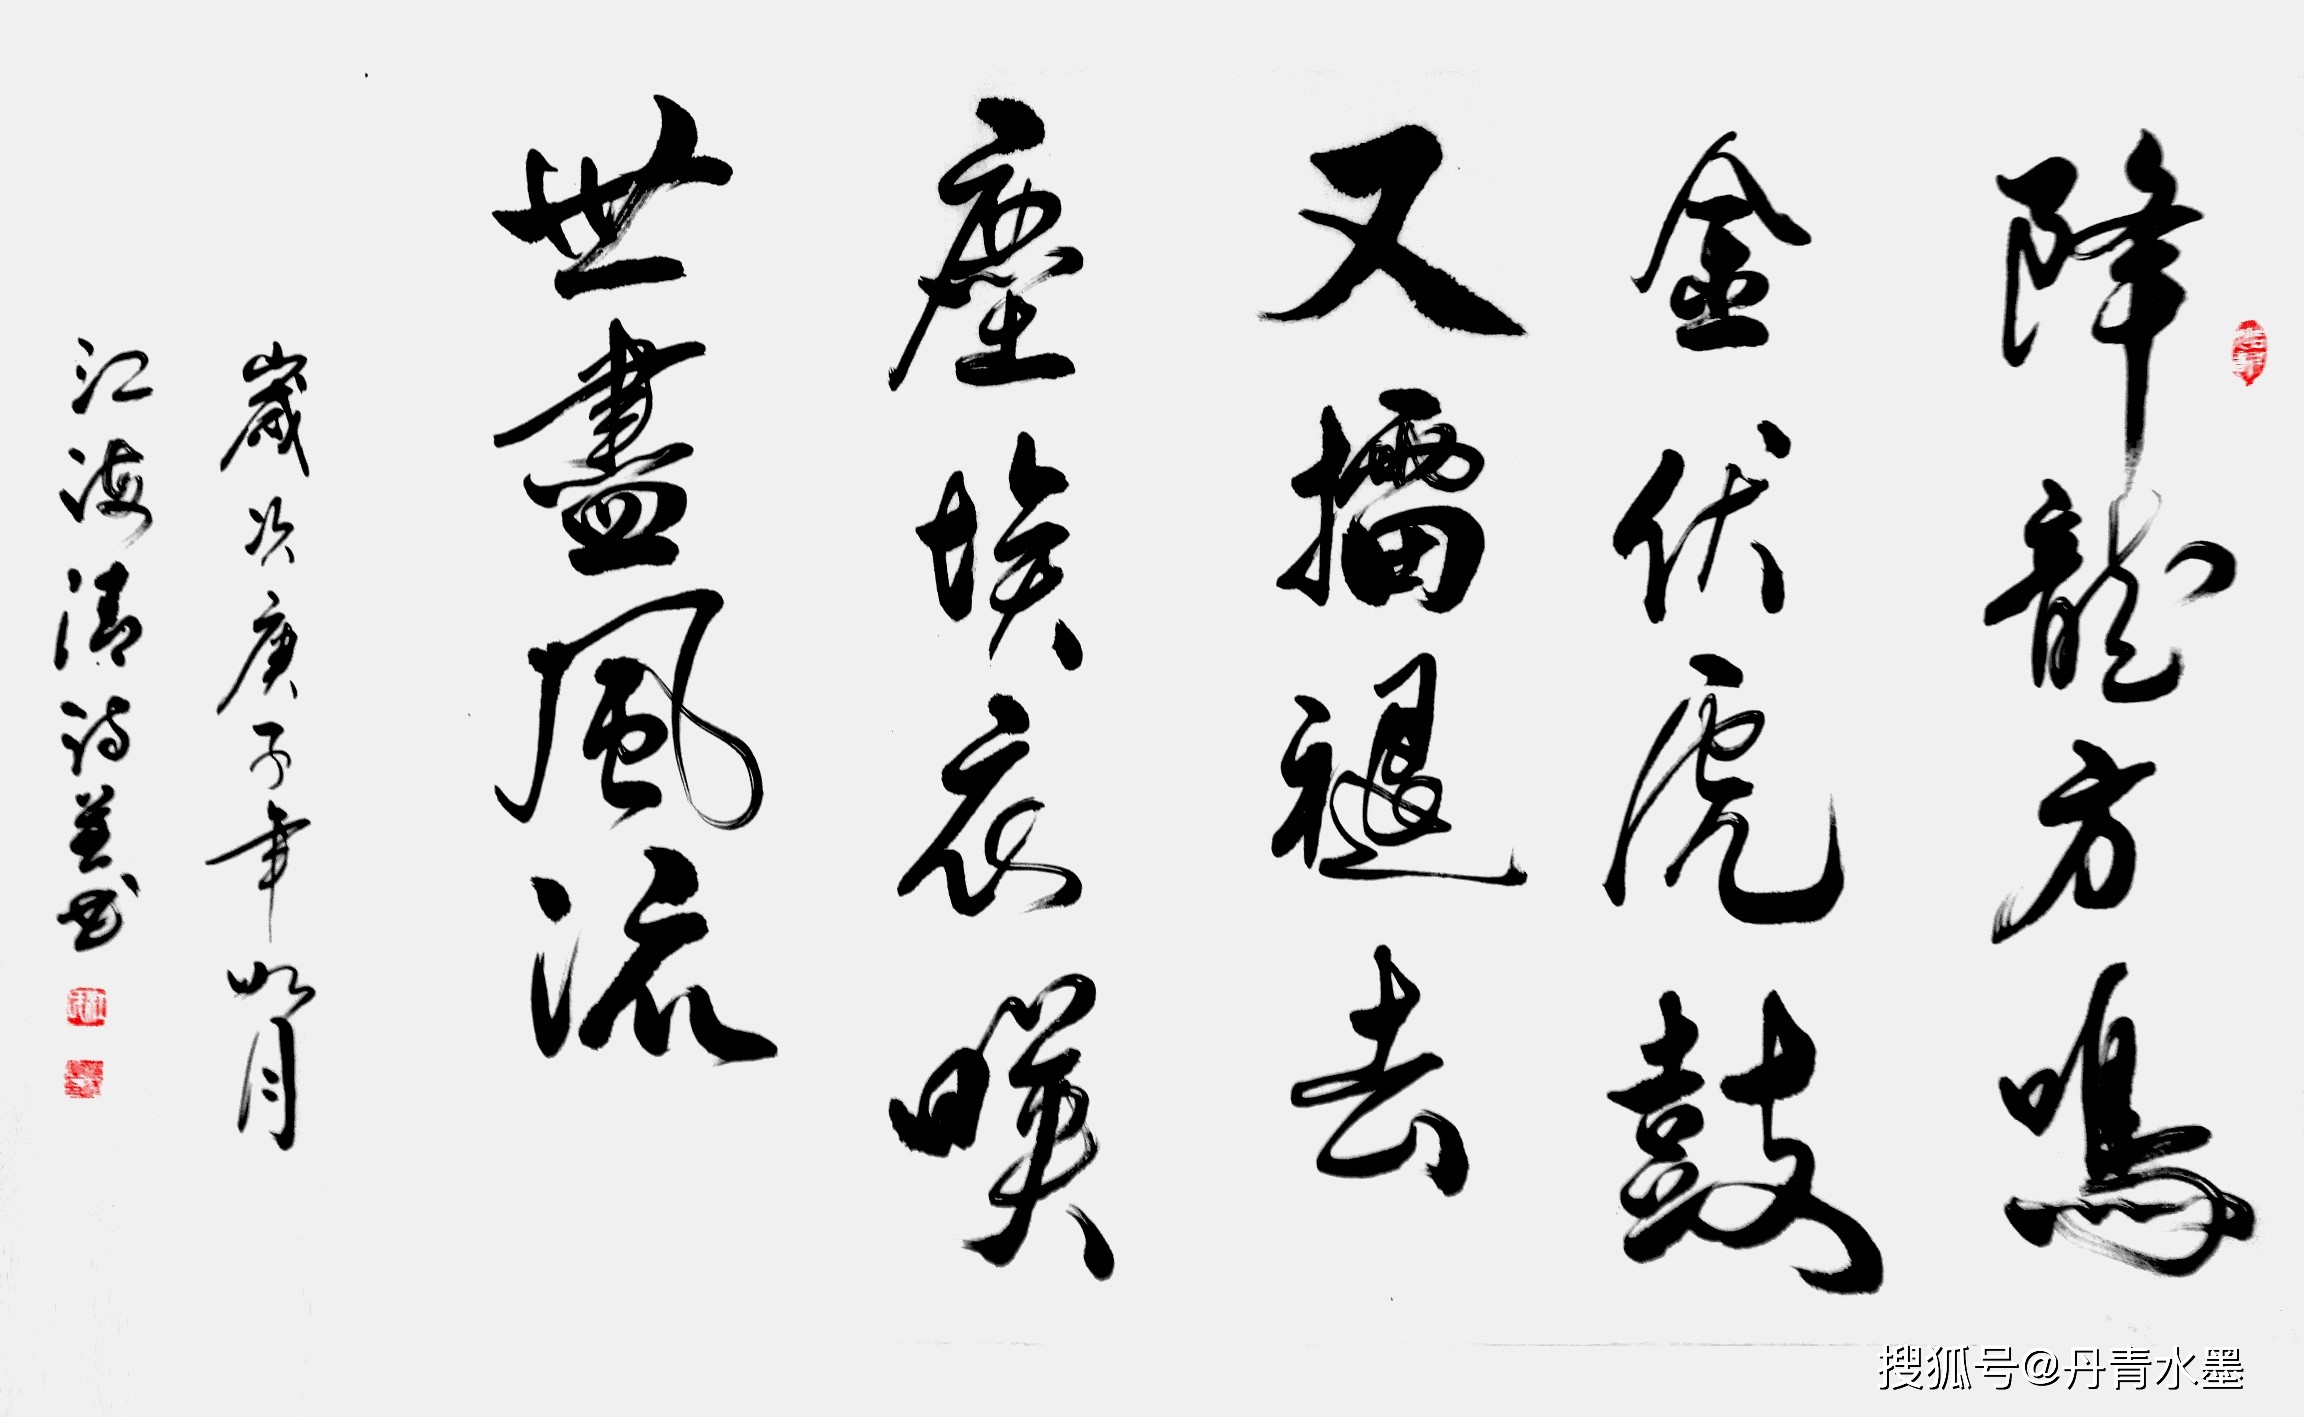 降龍方鳴
金伏虎鼓
又擂褪去
塵埃衣
世盡風流
歲次庚子年如月
江海清詩並书
搜狐号@丹青水墨